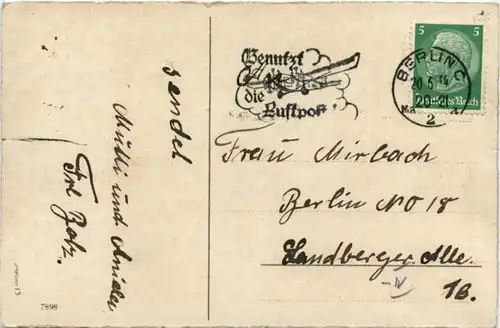 sendet
Mutti und
Frl. Botz.
7898
Benutzt
die
Luftpost
BERLIN C
20.5.34
2
5 5
Deutsches Reich
Frau Mirbach
Berlin NO 18
Landberger Alle.